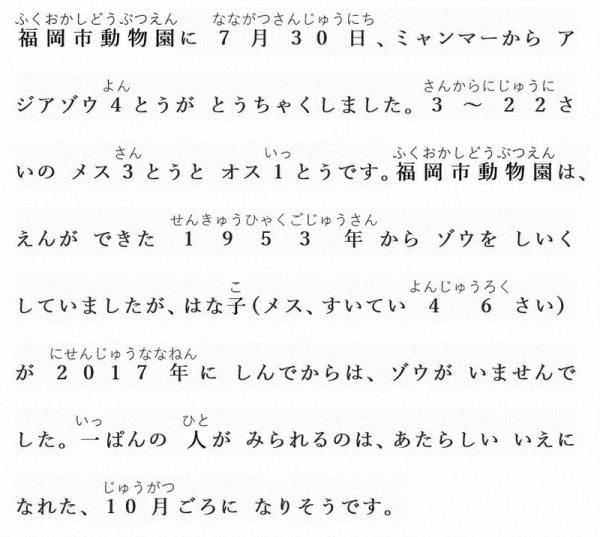 ふくおかしどうぶつえん なながつさんじゅうにち
福岡市動物園に 7月30日、ミャンマーから ア
よん さんからにじゅうに
ジアゾウ4とうが とうちゃくしました。3～22さ
さん いっ ふくおかしどうぶつえん
いの メス3とうと オス1とうです。福岡市動物園は、
せんきゅうひゃくごじゅうさん
えんが できた 1953年から ゾウを しいく
こ よんじゅうろく
していましたが、はな子（メス、すいてい 46さい）
にせんじゅうななねん
が 2017年に しんでからは、ゾウが いませんで
いっ ひと
した。一ぱんの 人が みられるのは、あたらしい いえに
じゅうがつ
なれた、10月ごろに なりそうです。